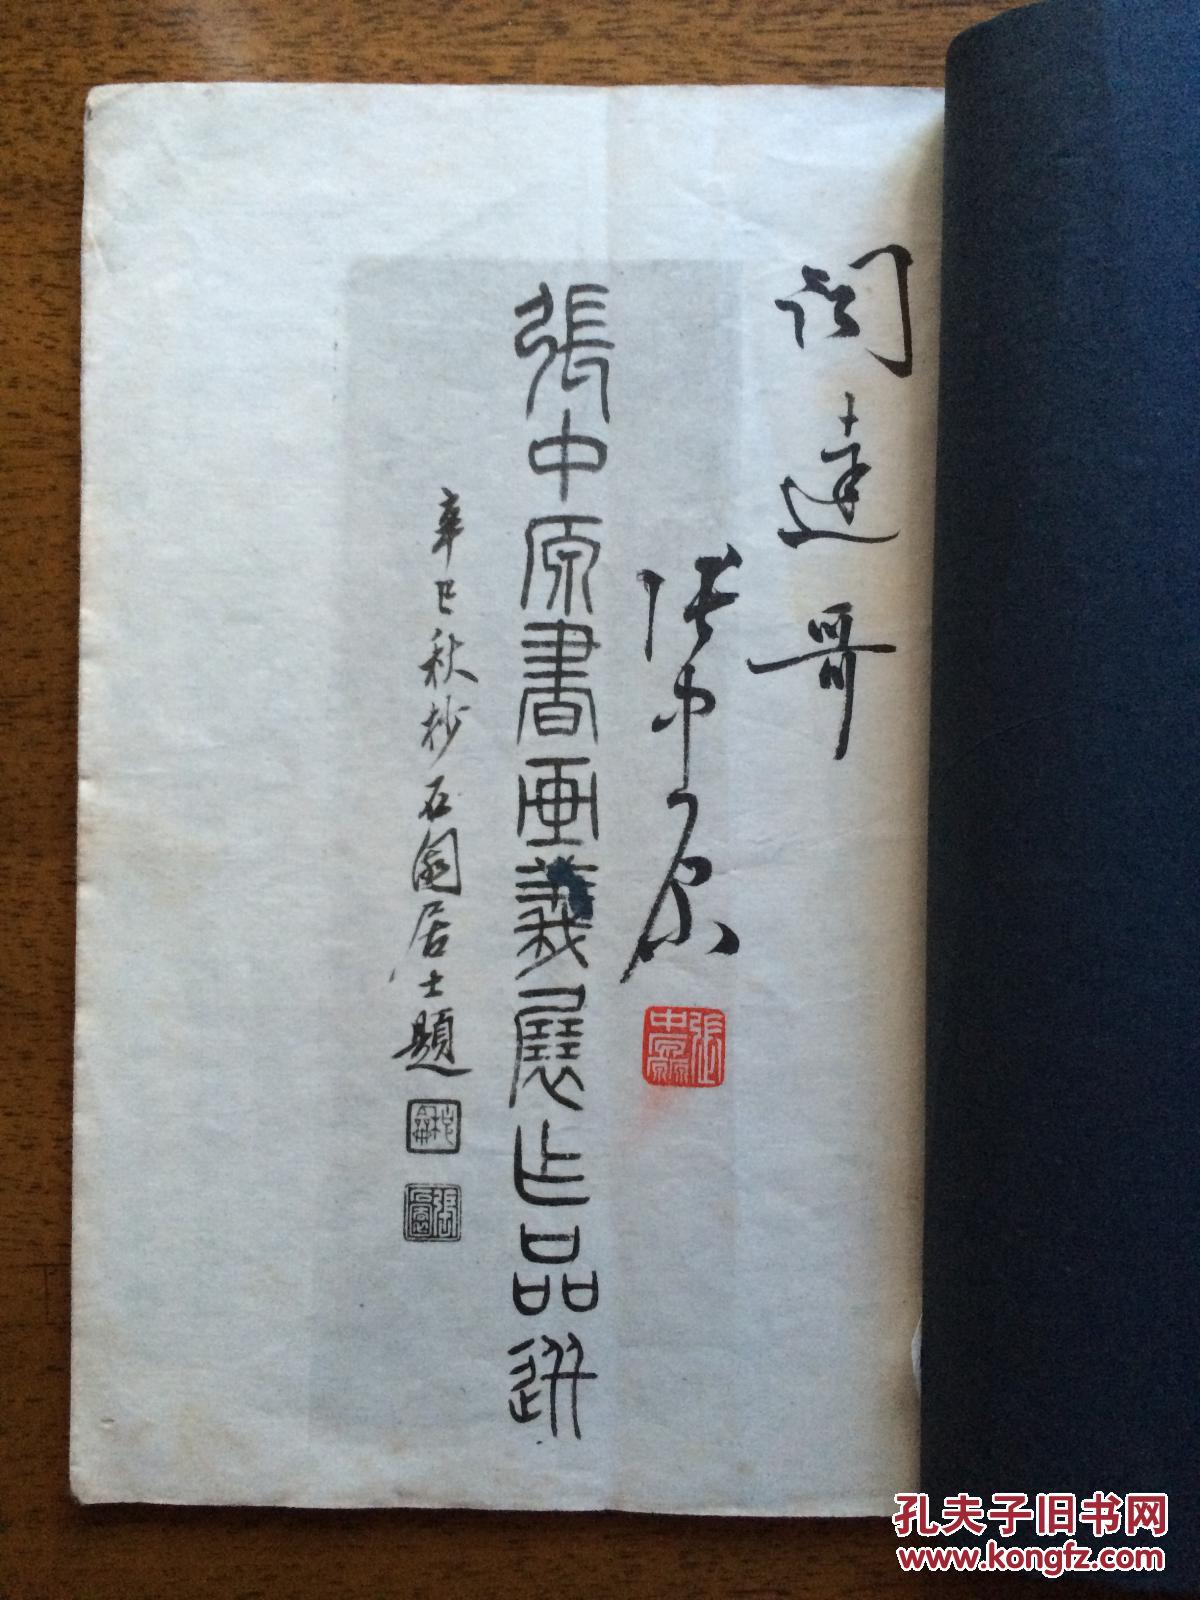 達哥
张中原
張中原
張中原書画義展作品選
辛巳秋杪石園居士題
張石園
孔夫子旧书网
www.kongfz.com